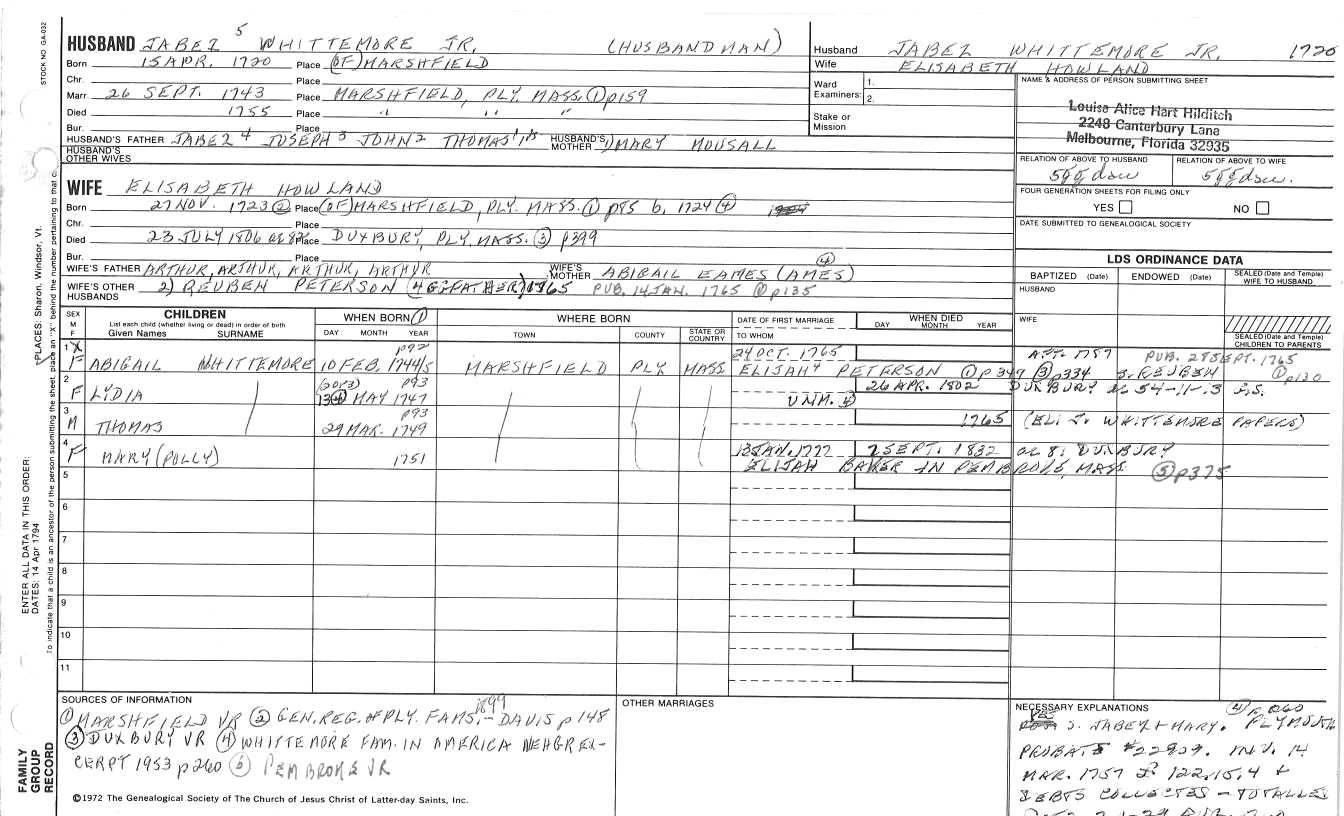 STOCK NO. GA-032
HUSBAND JABEZ 5 WHITTEMORE JR. (HUSBANDMAN)
Born 15 APR. 1720 Place (OF) MARSHFIELD
Chr. Place
Marr. 26 SEPT. 1743 Place MARSHFIELD, PLY. MASS. ① p159
Died 1755 Place " " "
Bur. Place
HUSBAND'S FATHER JABEZ 4 JOSEPH 3 JOHN 2 THOMAS HUSBAND'S MOTHER MARY MOUSALL
HUSBAND'S OTHER WIVES
Husband JABEZ WHITTEMORE JR. 1720
Wife ELISABETH HOWLAND
Ward Examiners: 1.
2.
Stake or Mission
NAME & ADDRESS OF PERSON SUBMITTING SHEET
Louise Alice Hart Hilditch
2248 Canterbury Lane
Melbourne, Florida 32935
RELATION OF ABOVE TO HUSBAND RELATION OF ABOVE TO WIFE
5ggdau 5ggdau.
FOUR GENERATION SHEETS FOR FILING ONLY
YES NO
DATE SUBMITTED TO GENEALOGICAL SOCIETY
WIFE ELISABETH HOWLAND
Born 27 NOV. 1723 ② Place (OF) MARSHFIELD, PLY. MASS. ① p85 b. 1724 ④
Chr. Place
Died 23 JULY 1806 ae 82 Place DUXBURY, PLY. MASS. ③ p399
Bur. Place
WIFE'S FATHER ARTHUR, ARTHUR, ARTHUR, ARTHUR WIFE'S MOTHER ABIGAIL EAMES (AMES) ④
WIFE'S OTHER HUSBANDS 2) REUBEN PETERSON (4 GGFATHER) 1765 PUB. 14 JAN. 1765 ① p135
LDS ORDINANCE DATA
BAPTIZED (Date) ENDOWED (Date) SEALED (Date and Temple) WIFE TO HUSBAND
HUSBAND
WIFE
SEALED (Date and Temple) CHILDREN TO PARENTS
SEX M F
CHILDREN
List each child (whether living or dead) in order of birth
Given Names SURNAME
WHEN BORN ①
DAY MONTH YEAR
WHERE BORN
TOWN COUNTY STATE OR COUNTRY
DATE OF FIRST MARRIAGE
TO WHOM
WHEN DIED
DAY MONTH YEAR
1 X p92 24 OCT. 1765 APR. 1757 PUB. 28 SEPT. 1765
F ABIGAIL WHITTEMORE 10 FEB. 1744/5 MARSHFIELD PLY MASS ELIJAH PETERSON ① p349 ③ p334 S. REUBEN ① p130
2 p93 26 APR. 1802 DUXBURY ae 54-11-3 G.S.
F LYDIA 13 ④ MAY 1747 UNM. 4
3 p93
M THOMAS 29 MAR. 1749 1765 (ELI J. WHITTEMORE PAPERS)
4 13 JAN. 1772 2 SEPT. 1832 ae 81 DUXBURY
F MARY (POLLY) 1751 ELIJAH BAKER IN PEMBROKE, MASS. ⑤ p375
5
6
7
8
9
10
11
SOURCES OF INFORMATION
① MARSHFIELD VR ② GEN. REG. of PLY. FAMS. 1899 - DAVIS p 148
③ DUXBURY VR ④ WHITTEMORE FAM. IN AMERICA NEHGR EX-
CERPT 1953 p260 ⑤ PEMBROKE VR
OTHER MARRIAGES
NECESSARY EXPLANATIONS ④ p260
S. JABEZ + MARY. PLYMOUTH
PROBATE INV. 14
MAR. 1757 £ 122.15.4 +
DEBTS COLLECTED - TOTALLED
FAMILY GROUP RECORD
©1972 The Genealogical Society of The Church of Jesus Christ of Latter-day Saints, Inc.
ENTER ALL DATA IN THIS ORDER:
DATES: 14 Apr 1794
PLACES: Sharon, Windsor, Vt.
To indicate that a child is an ancestor of the person submitting the sheet, place an "X" behind the number pertaining to that c